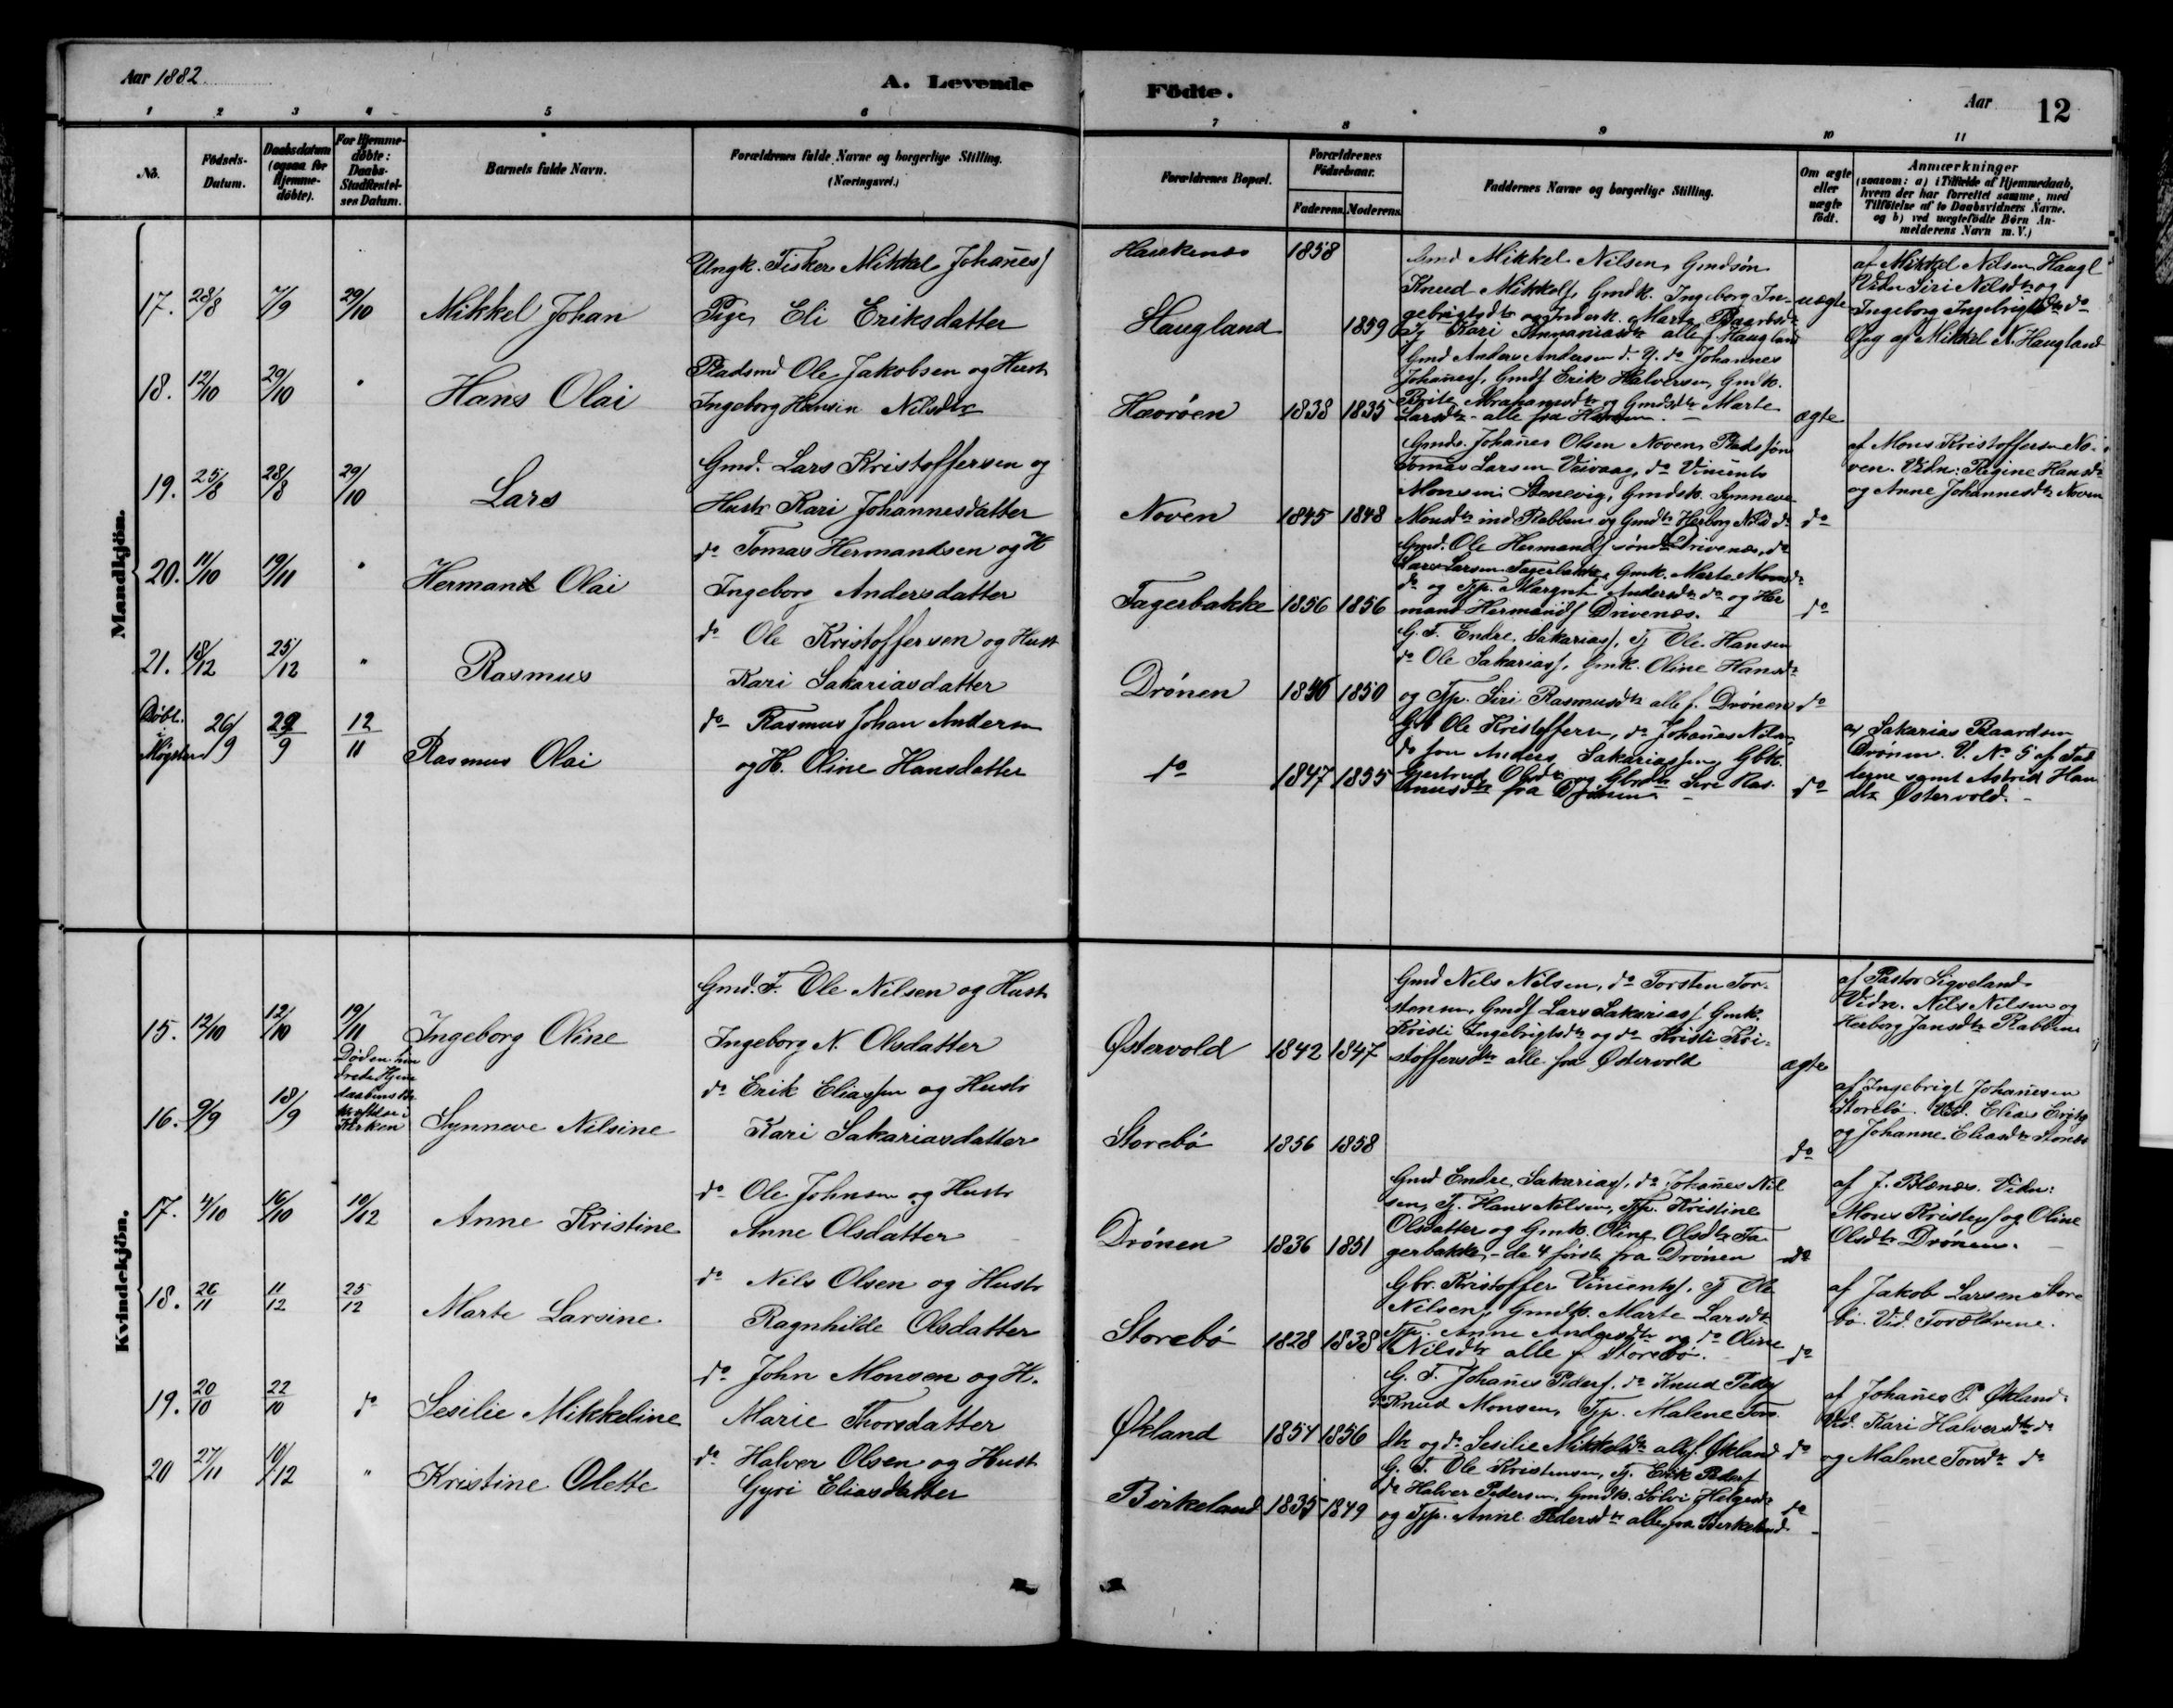 Aar 1882
A. Levende
Födte.
Aar
12
1 2 3 4 5 6
7 8 9 10 11
No.
Födsels-
Datum.
Daabsdatum
(ogsaa for
Hjemme-
döbte).
For Hjemme-
döbte:
Daabs-
Stadfæstel-
ses Datum.
Barnets fulde Navn.
Forældrenes fulde Navne og borgerlige Stilling.
(Næringsvei.)
Forældrenes Bopæl.
Forældrenes
Födselsaar.
Faderens. Moderens.
Faddernes Navne og borgerlige Stilling.
Om ægte
eller
uægte
födt.
Anmærkninger
(saasom: a) i Tilfælde af Hjemmedaab,
hvem der har forrettet samme, med
Tilföielse af to Daabsvidners Navne.
og b) ved uægtefödte Börn An-
melderens Navn m. V.)
Mandkjön.
17. 28/8 7/9 29/10 Mikkel Johan
Ungk. Fisker Mikkel Johanes/
Pige Eli Eriksdatter
Haukenes 1858
Haugland 1859
Gmd Mikkel Nilsen, Gmdsøn
Knud Mikkels/, Gmdk. Ingeborg In-
gebrigtsdtr og Marta Baardsdtr
Kari alle f. Haugland
uægte
af Mikkel Nilsen Haugl
Vidn Siri Nilsdtr og
Ingeborg Ingebrigtsdtr do
Opg af Mikkel N. Haugland
18. 12/10 29/10 " Hans Olai
Pladsmd Ole Jakobsen og Hustr
Ingeborg Hansin Nilsdtr
Havrøen 1838 1835
Gmd Anders Andersen d. Y. do Johannes
Johanes/, Gmds/ Erik Halversen, Gmk.
Brite Abrahamsdtr og Gmdsdtr Marte
Larsdtr - alle fra Havrøen.
ægte
19. 25/8 28/8 29/10 Lars
Gmd. Lars Kristoffersen og
Hustr Kari Johannesdatter
Noven 1845 1848
Gmds. Johanes Olsen Noven, Pladssøn
Tomas Larsen Vaivaag, do Vincents
Monsen Stenevig, Gmdsk. Synneve
Monsdtr ind Rabben og Gmdtr Herborg Nilsd do
do
af Mons Kristoffersen No-
ven. Vidn: Regine Hansdr
og Anne Johannesdtr Noven
20. 11/10 19/11 " Hermand Olai
do Tomas Hermandsen og H
Ingeborg Andersdatter
Fagerbakke 1856 1856
Gmd. Ole Hermands/ søndr Drivenæs, do
Lars Larsen Fagerbakke, Gmk. Marte Monsdr
do og Tjp. Margrit Andersdtr do og Her
mand Hermands/ Drivenæs.
do
21. 18/12 25/12 " Rasmus
do Ole Kristoffersen og Hust
Kari Sakariasdatter
Drönen 1846 1850
G. F. Endre Sakarias/, Tj Ole Hansen
do Ole Sakarias/, Gmk. Oline Hansdr
og Tjp. Siri Rasmusdtr alle f. Drönen
do
Döbt. i Møgster 26/9 29/9 12/11 Rasmus Olai
do Rasmus Johan Andersen
og H. Oline Hansdatter
do 1847 1855
Gbr Ole Kristoffersen, do Johanes Nilsen,
do Anders Sakariassen, Gbk.
Gjertrud Olsdtr og Gbrdtr Siri Ras-
musdtr fra Drönen -
do
af Sakarias Baardsen
Drönen. V. No 5 af Fad
derne samt Astrid Han
dtr Østervold. -
Kvindekjön.
15. 12/10 12/10 19/11 Ingeborg Oline
Gmd. F. Ole Nilsen og Hustr
Ingeborg N. Olsdatter
Østervold 1842 1847
Gmd Nils Nilsen, do Torsten Tor-
stensen, Gmds/ Lars Sakarias/ Gmk.
Kristi Ingebrigtsdtr og do Kristi Kri-
stoffersdtr alle fra Østervold
ægte
af Pastor Sigveland.
Vidn. Nils Nilsen og
Herborg Jansdtr Rabben
16. 9/9 18/9
Död en hin
drede Hjem
daabens Be
kræftelse i
Kirken
Synneve Nilsine
do Erik Eliassen og Hustr
Kari Sakariasdatter
Storebö 1856 1858
do
af Ingebrigt Johanesen
Storebö. Vid. Elias
og Johanne Eliasdtr Storebö
17. 4/10 16/10 10/12 Anne Kristine
do Ole Johnsen og Hustr
Anne Olsdatter
Drönen 1836 1851
Gmd Endre Sakarias/, do Johanes Nil
sen, Tj. Hans Nilsen, Tjp. Kristine
Olsdatter og Gmk. Oline Olsdtr Fa-
gerbakke, - de 4 förste fra Drönen
do
af J. Blænæs. Vidn:
Mons Kristens/ og Oline
Olsdtr Drönen. -
18. 26/11 11/12 25/12 Marte Larsine
do Nils Olsen og Hustr
Ragnhilde Olsdatter
Storebö 1828 1838
Gbr. Kristoffer Vincents/, Tj Ole
Nilsen, Gmdk. Marte Larsdtr
Tjp. Anne Andersdtr og do Oline
Nilsdtr alle f Storebö.
do
af Jakob Larsen Store
bö. Vid. Forældrene.
19. 20/10 22/10 do Sesilie Mikkeline
do John Monsen og H.
Marie Thorsdatter
Økland 1854 1856
G. F. Johanes Peders/, do Knud Peders/
do Knud Monsen, Tjp. Malene Tors
dtr og do Sesilie Mikkelsdtr alle f. Økland
do
af Johanes P. Økland.
Vid. Kari Halversdtr do
og Malene Torsdtr do
20 27/11 10/12 " Kristine Olette
do Halver Olsen og Hustr
Gyri Eliasdatter
Birkeland 1835 1849
G. F. Ole Kristensen, Tj. Erik Peders/
do Halver Pedersen, Gmdk. Sölvi Helgesdr
og Tjp. Anne Pedersdtr alle fra Birkeland.
do